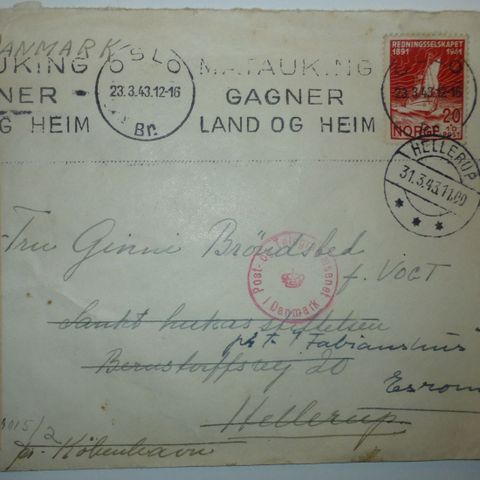 DANMARK
OSLO
23.3.43.12-16
Br.
AUKING
NER -
G HEIM
MATAUKING
GAGNER
LAND OG HEIM
23.3.43.12-16
REDNINGSSELSKAPET
1891 1941
20
NORGE
HELLERUP
31.3.43.11.00
Fru Ginni Bröndsbed
f. VOGT
Post- og Telegrafvæsenet
i Danmark
Sankt Lukas stiftelsen
"Fabianshus"
Bernstorffsvej 20
Esrom
Hellerup
pr. København